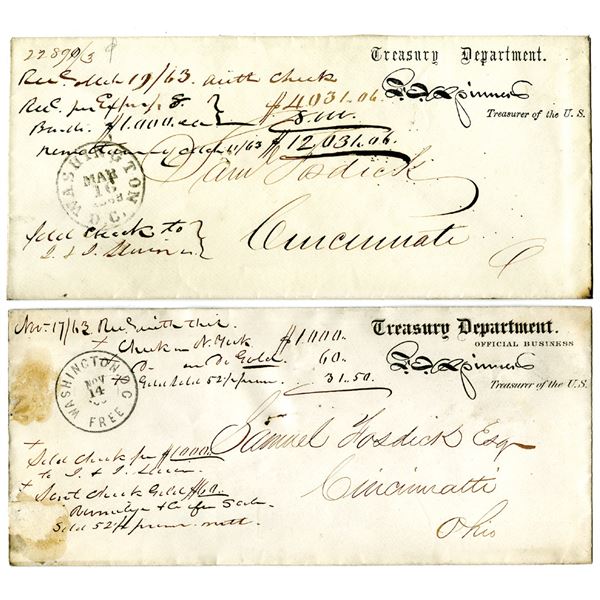 22890/3
Treasury Department.
Rec'd Mch 19/63 with check $4031.06.
Rec. per Exp.
Bonds $1.000. ea
8.000.
F. E. Spinner
Treasurer of the U. S.
63 $12,031.06.
WASHINGTON D.C.
MAR 16 1863
Sam Fosdick
Cincinnati
Sold check to
S. & S.
Nov. 17/63 Rec'd with this
+ Check on N. York $1000..
Do on Do Gold. 60..
Gold Sold 52½ prem. 31..50.
Treasury Department.
OFFICIAL BUSINESS
F. E. Spinner
Treasurer of the U. S.
WASHINGTON D.C.
NOV 14
FREE
Samuel Fosdick Esq
Cincinnatti
Ohio
+ Sold Check for $1000.
to S. & S.
+ Sent Check Gold $60..
& Co for Sale
Sold 52½ prem. nett.